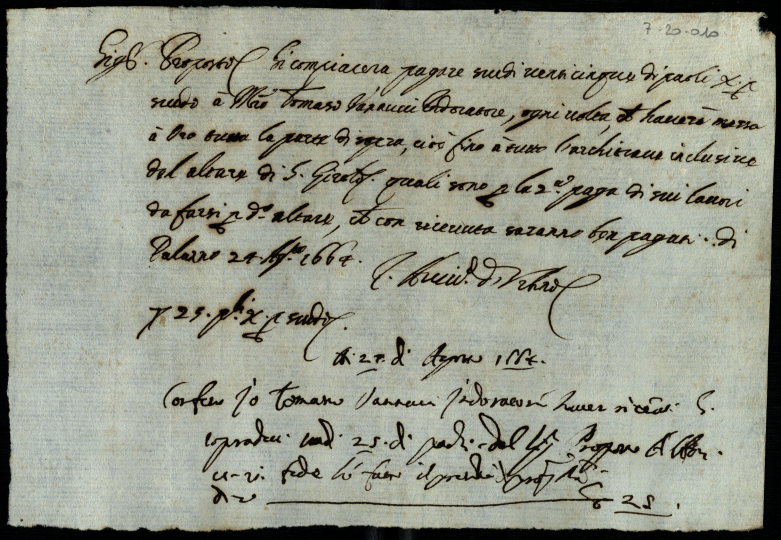 7-20-010
Sig.r Proposto si compiacera pagare scudi venticinque di paoli X p
scudo à Mro Tomaso Vannucci Indoratore, ogni volta, ch haverà messo
à oro tutta la parte di sopra, cioè fino a tutto l'architrave inclusive
del altare di S. quali sono p la 2.a paga di sui lavori
da farsi p d.o altare, ch con ricevuta saranno ben pagati. di
Palazzo 24 Ag.to 1664.
25. p.li X. p scudo
A 27. di Agosto 1664.
Io Tomaso Vannucci Indoratore haver li
sopradetti scudi 25. di paoli dal Sig. Proposto
fede hò fatto il presente
25.